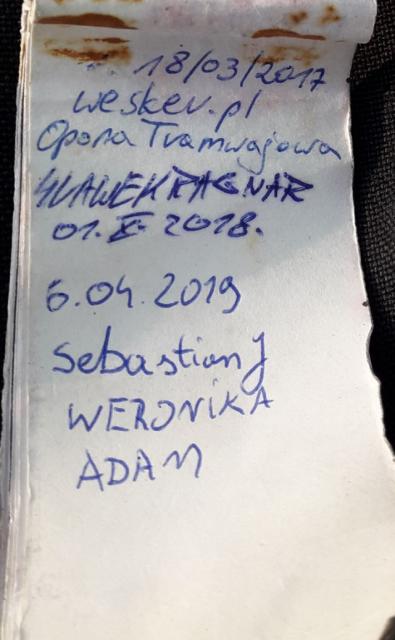 18/03/2017
weskev.pl
Opona Tramwajowa
SŁAWEK RAGNAR
01. X 2018.
6.04.2019
Sebastian J
WERONIKA
ADAM